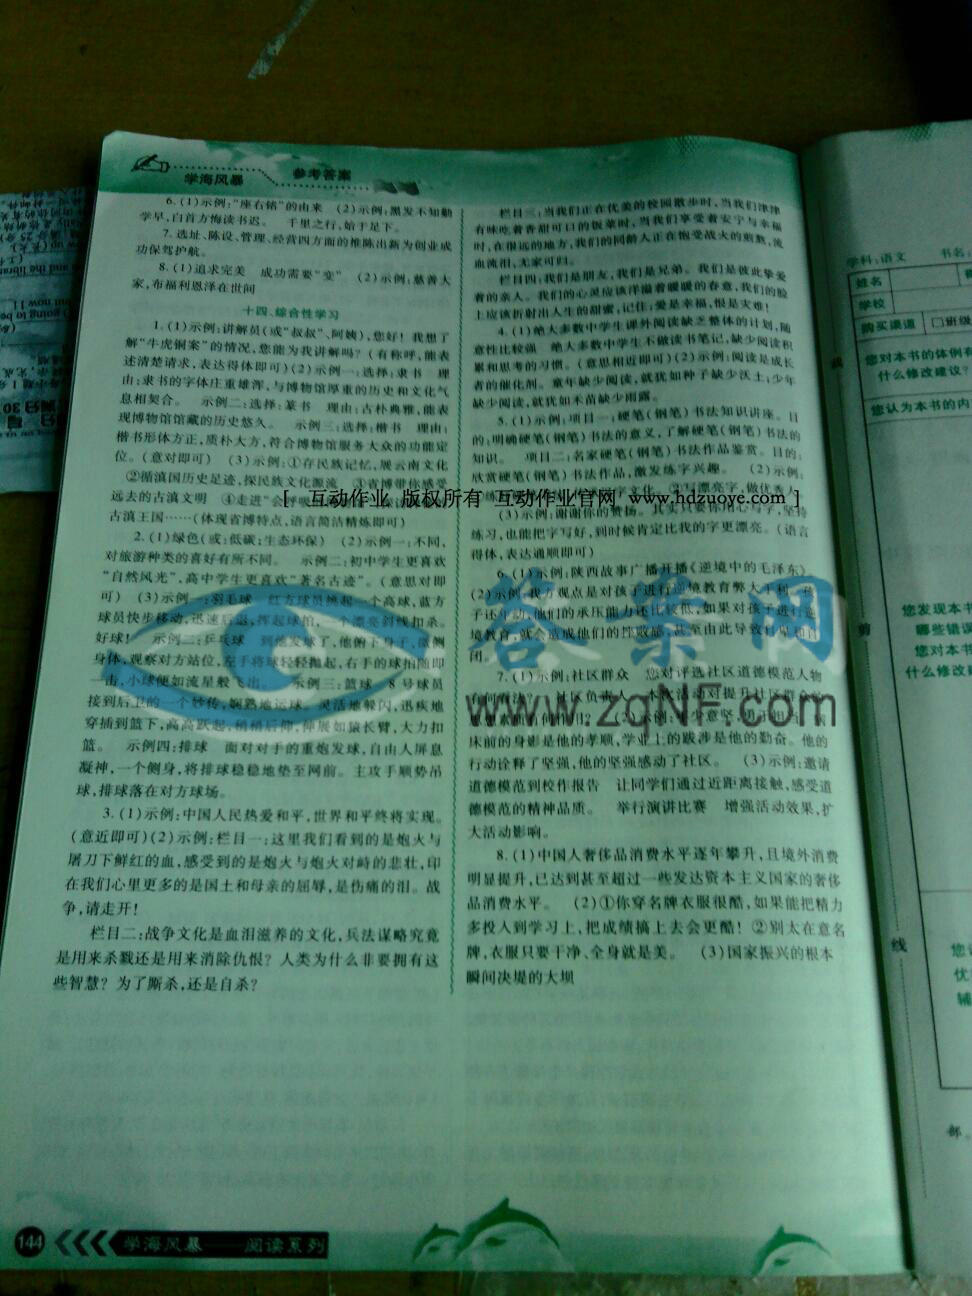 学海风暴
参考答案
6.(1)示例:“座右铭”的由来 (2)示例:黑发不知勤
学早,白首方悔读书迟。 千里之行,始于足下。
7.选址、陈设、管理、经营四方面的推陈出新为创业成
功保驾护航。
8.(1)追求完美 成功需要“变” (2)示例:慈善大
家,布福利恩泽在世间
十四、综合性学习
1.(1)示例:讲解员(或“叔叔”、阿姨),您好!我想了
解“牛虎铜案”的情况,您能为我讲解吗?(有称呼,能表
述清楚请求,表达得体即可)(2)示例一:选择:隶书 理
由:隶书的字体庄重雄浑,与博物馆厚重的历史和文化气
息相契合。 示例二:选择:篆书 理由:古朴典雅,能表
现博物馆馆藏的历史悠久。 示例三:选择:楷书 理由:
楷书形体方正,质朴大方,符合博物馆服务大众的功能定
位。(意对即可) (3)示例:①在民族记忆,展云南文化
②循滇国历史足迹,探民族文化源流 ③省博带你感受
远去的古滇文明 ④走进“会
古滇王国……(体现省博特点,语言简洁精炼即可)
2.(1)绿色(或:低碳;生态环保) (2)示例一:不同,
对旅游种类的喜好有所不同。 示例二:初中学生更喜欢
“自然风光”,高中学生更喜欢“著名古迹”。(意思对即
可) (3)示例一:羽毛球 红方球员挑起一个高球,蓝方
球员快步移动,迅速后退,挥起球拍,一个漂亮斜线扣杀。
好球! 示例二:乒乓球 到他发球了,他俯下身子,微侧
身体,观察对方站位,左手将球轻轻抛起,右手的球拍随即
一击,小球便如流星般飞出。 示例三:篮球 8号球员
接到后卫的一个妙传,娴熟地运球。灵活地躲闪,迅疾地
穿插到篮下,高高跃起,稍稍后仰,伸展如猿长臂,大力扣
篮。 示例四:排球 面对对手的重炮发球,自由人屏息
凝神,一个侧身,将排球稳稳地垫至网前。主攻手顺势吊
球,排球落在对方球场。
3.(1)示例:中国人民热爱和平,世界和平终将实现。
(意近即可)(2)示例:栏目一:这里我们看到的是炮火与
屠刀下鲜红的血,感受到的是炮火与炮火对峙的悲壮,印
在我们心里更多的是国土和母亲的屈辱,是伤痛的泪。战
争,请走开!
栏目二:战争文化是血泪滋养的文化,兵法谋略究竟
是用来杀戮还是用来消除仇恨?人类为什么非要拥有这
些智慧?为了厮杀,还是自杀?
栏目三:当我们正在优美的校园散步时,当我们津津
有味吃着香甜可口的饭菜时,当我们享受着安宁与幸福
时,在很远的地方,我们的同龄人正在饱受战火的煎熬,流
血流泪,无家可归。
栏目四:我们是朋友,我们是兄弟。我们是彼此挚爱
着的亲人。我们的心灵应该洋溢着暖暖的春意,我们的脸
上应该折射出人生的甜蜜,记住:爱是幸福,恨是灾难!
4.(1)绝大多数中学生课外阅读缺乏整体的计划,随
意性比较强 绝大多数中学生不做读书笔记,缺少阅读积
累和思考的习惯。(意思相近即可)(2)示例:阅读是成长
者的催化剂。童年缺少阅读,就犹如种子缺少沃土;少年
缺少阅读,就犹如禾苗缺少雨露。
5.(1)示例:项目一:硬笔(钢笔)书法知识讲座。目
的:明确硬笔(钢笔)书法的意义,了解硬笔(钢笔)书法的
知识。 项目二:名家硬笔(钢笔)书法作品鉴赏。目的:
欣赏硬笔(钢笔)书法作品,激发练字兴趣。 (2)示例:
文化。 ②写漂亮字,做优秀人
(3)示例:谢谢你的赞扬。其实只要你用心写字,坚持
练习,也能把字写好,到时候肯定比我的字更漂亮。(语言
得体,表达通顺即可)
6.(1)示例:陕西故事广播开播《逆境中的毛泽东》
(2)示例:我方观点是对孩子进行逆境教育弊大于利。孩
子还年幼,他们的承压能力还比较低,如果对孩子进行逆
境教育,就会造成他们的性败感,甚至由此导致自卑自
闭。
7.(1)示例:社区群众 您对评选社区道德模范人物
有何看法? 社区负责人 本次活动对提升社区群众的
(2)示例:年少意坚,勇于担当。病
床前的身影是他的孝顺,学业上的跋涉是他的勤奋。他的
行动诠释了坚强,他的坚强感动了社区。 (3)示例:邀请
道德模范到校作报告 让同学们通过近距离接触,感受道
德模范的精神品质。 举行演讲比赛 增强活动效果,扩
大活动影响。
8.(1)中国人奢侈品消费水平逐年攀升,且境外消费
明显提升,已达到甚至超过一些发达资本主义国家的奢侈
品消费水平。 (2)①你穿名牌衣服很酷,如果能把精力
多投入到学习上,把成绩搞上去会更酷!②别太在意名
牌,衣服只要干净、全身就是美。 (3)国家振兴的根本
瞬间决堤的大坝
[ 互动作业 版权所有 互动作业官网 www.hdzuoye.com ]
答案网
www.zqNF.com
144
学海风暴——阅读系列
学科:语文 书名:
姓名
学校
购买渠道 □班级
您对本书的体例有
什么修改建议?
您认为本书的内
线
剪
线
您发现本书
哪些错误
您对本书
什么修改
您
优
辅
部。